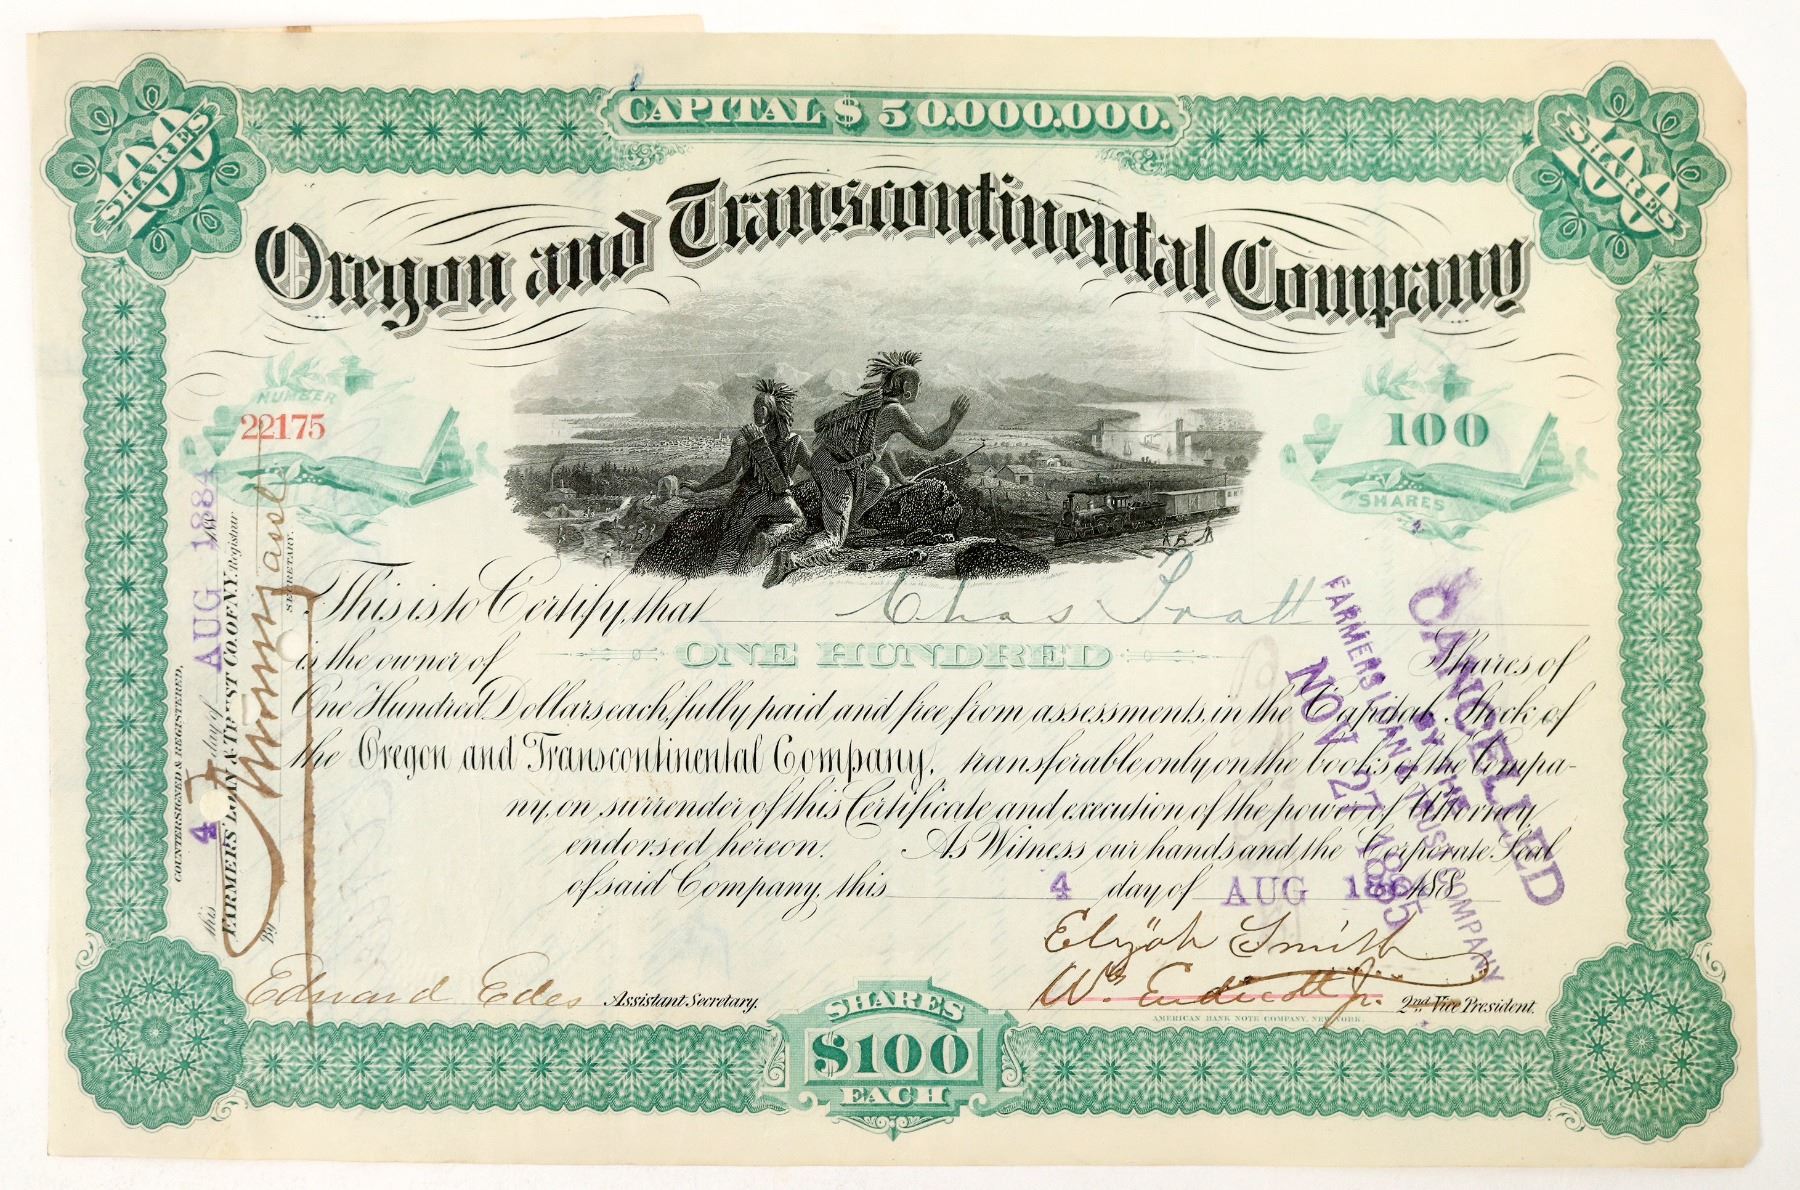 CAPITAL $ 50.000.000.
100 SHARES
100 SHARES
Oregon and Transcontinental Company
NUMBER
22175
100
SHARES
This is to Certify, that Chas Pratt
is the owner of ONE HUNDRED Shares of
One Hundred Dollars each, fully paid and free from assessments, in the Capital Stock of
the Oregon and Transcontinental Company, transferable only on the books of the Compa-
ny, on surrender of this Certificate and execution of the power of Attorney
endorsed hereon. As Witness our hands and the Corporate Seal
of said Company, this 4 day of AUG 1884 188
Elijah Smith
Edward Edes Assistant Secretary.
Wm. Endicott Jr. 2nd Vice President.
AMERICAN BANK NOTE COMPANY, NEW YORK.
SHARES
$100
EACH
COUNTERSIGNED & REGISTERED,
this 4 day of AUG 1884 188
FARMERS' LOAN & TRUST CO. OF N.Y. Registrar
By
SECRETARY.
CANCELLED
BY THE
FARMERS LOAN & TRUST COMPANY
NOV 27 1885